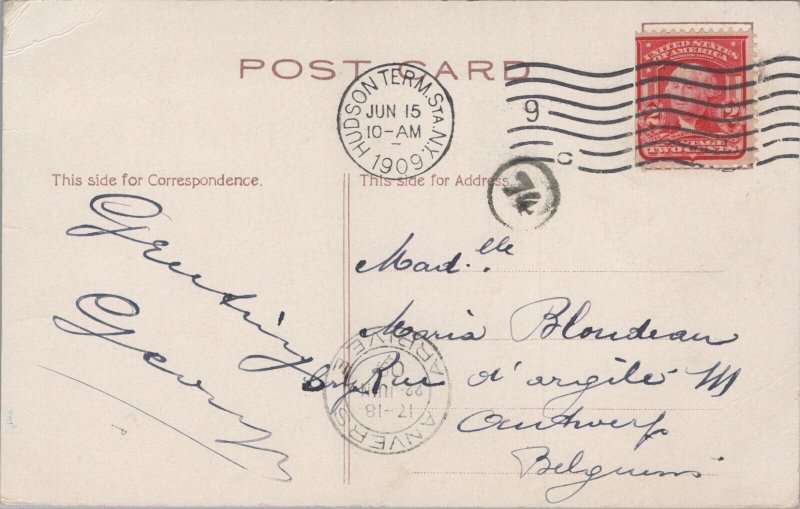 POST CARD
HUDSON TERM. STA. N.Y.
JUN 15
10-AM
1909
9
C
UNITED STATES
OF AMERICA
2 2
This side for Correspondence.
This side for Address.
Greeting
George
Mad.lle
Maria Blondeau
Rue d'argile 111
Antwerp
Belgium
ANVERS
ARRIVEE
17-18
22 JUIN
09